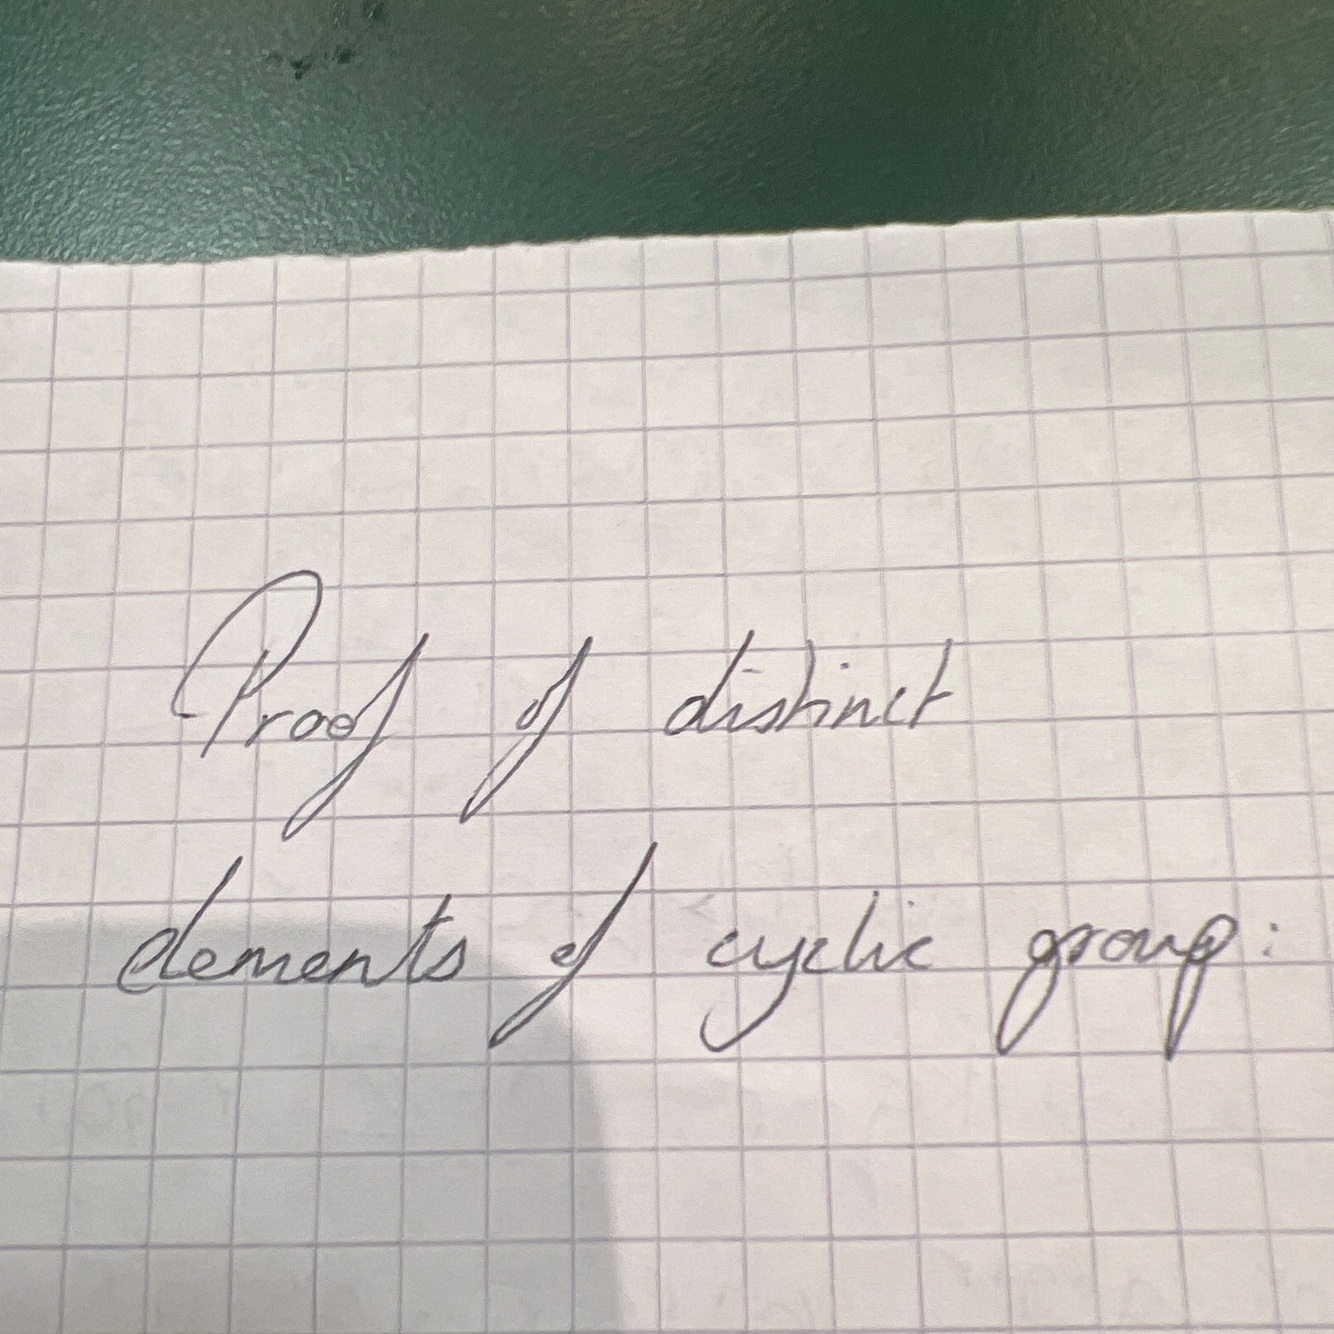 Proof of distinct
elements of cyclic group: